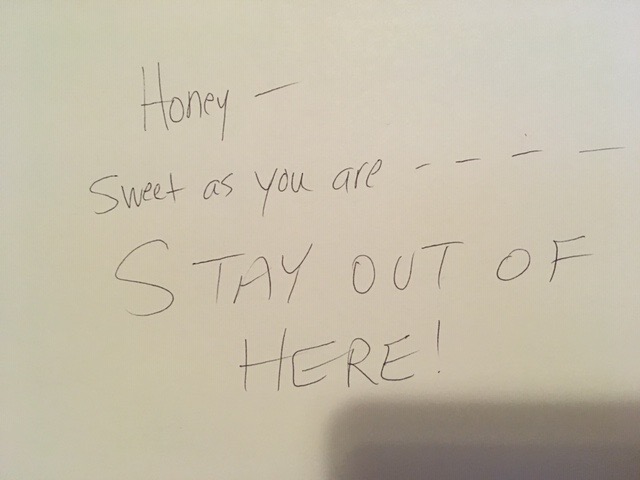 Honey –
Sweet as you are - - - –
STAY OUT OF
HERE!